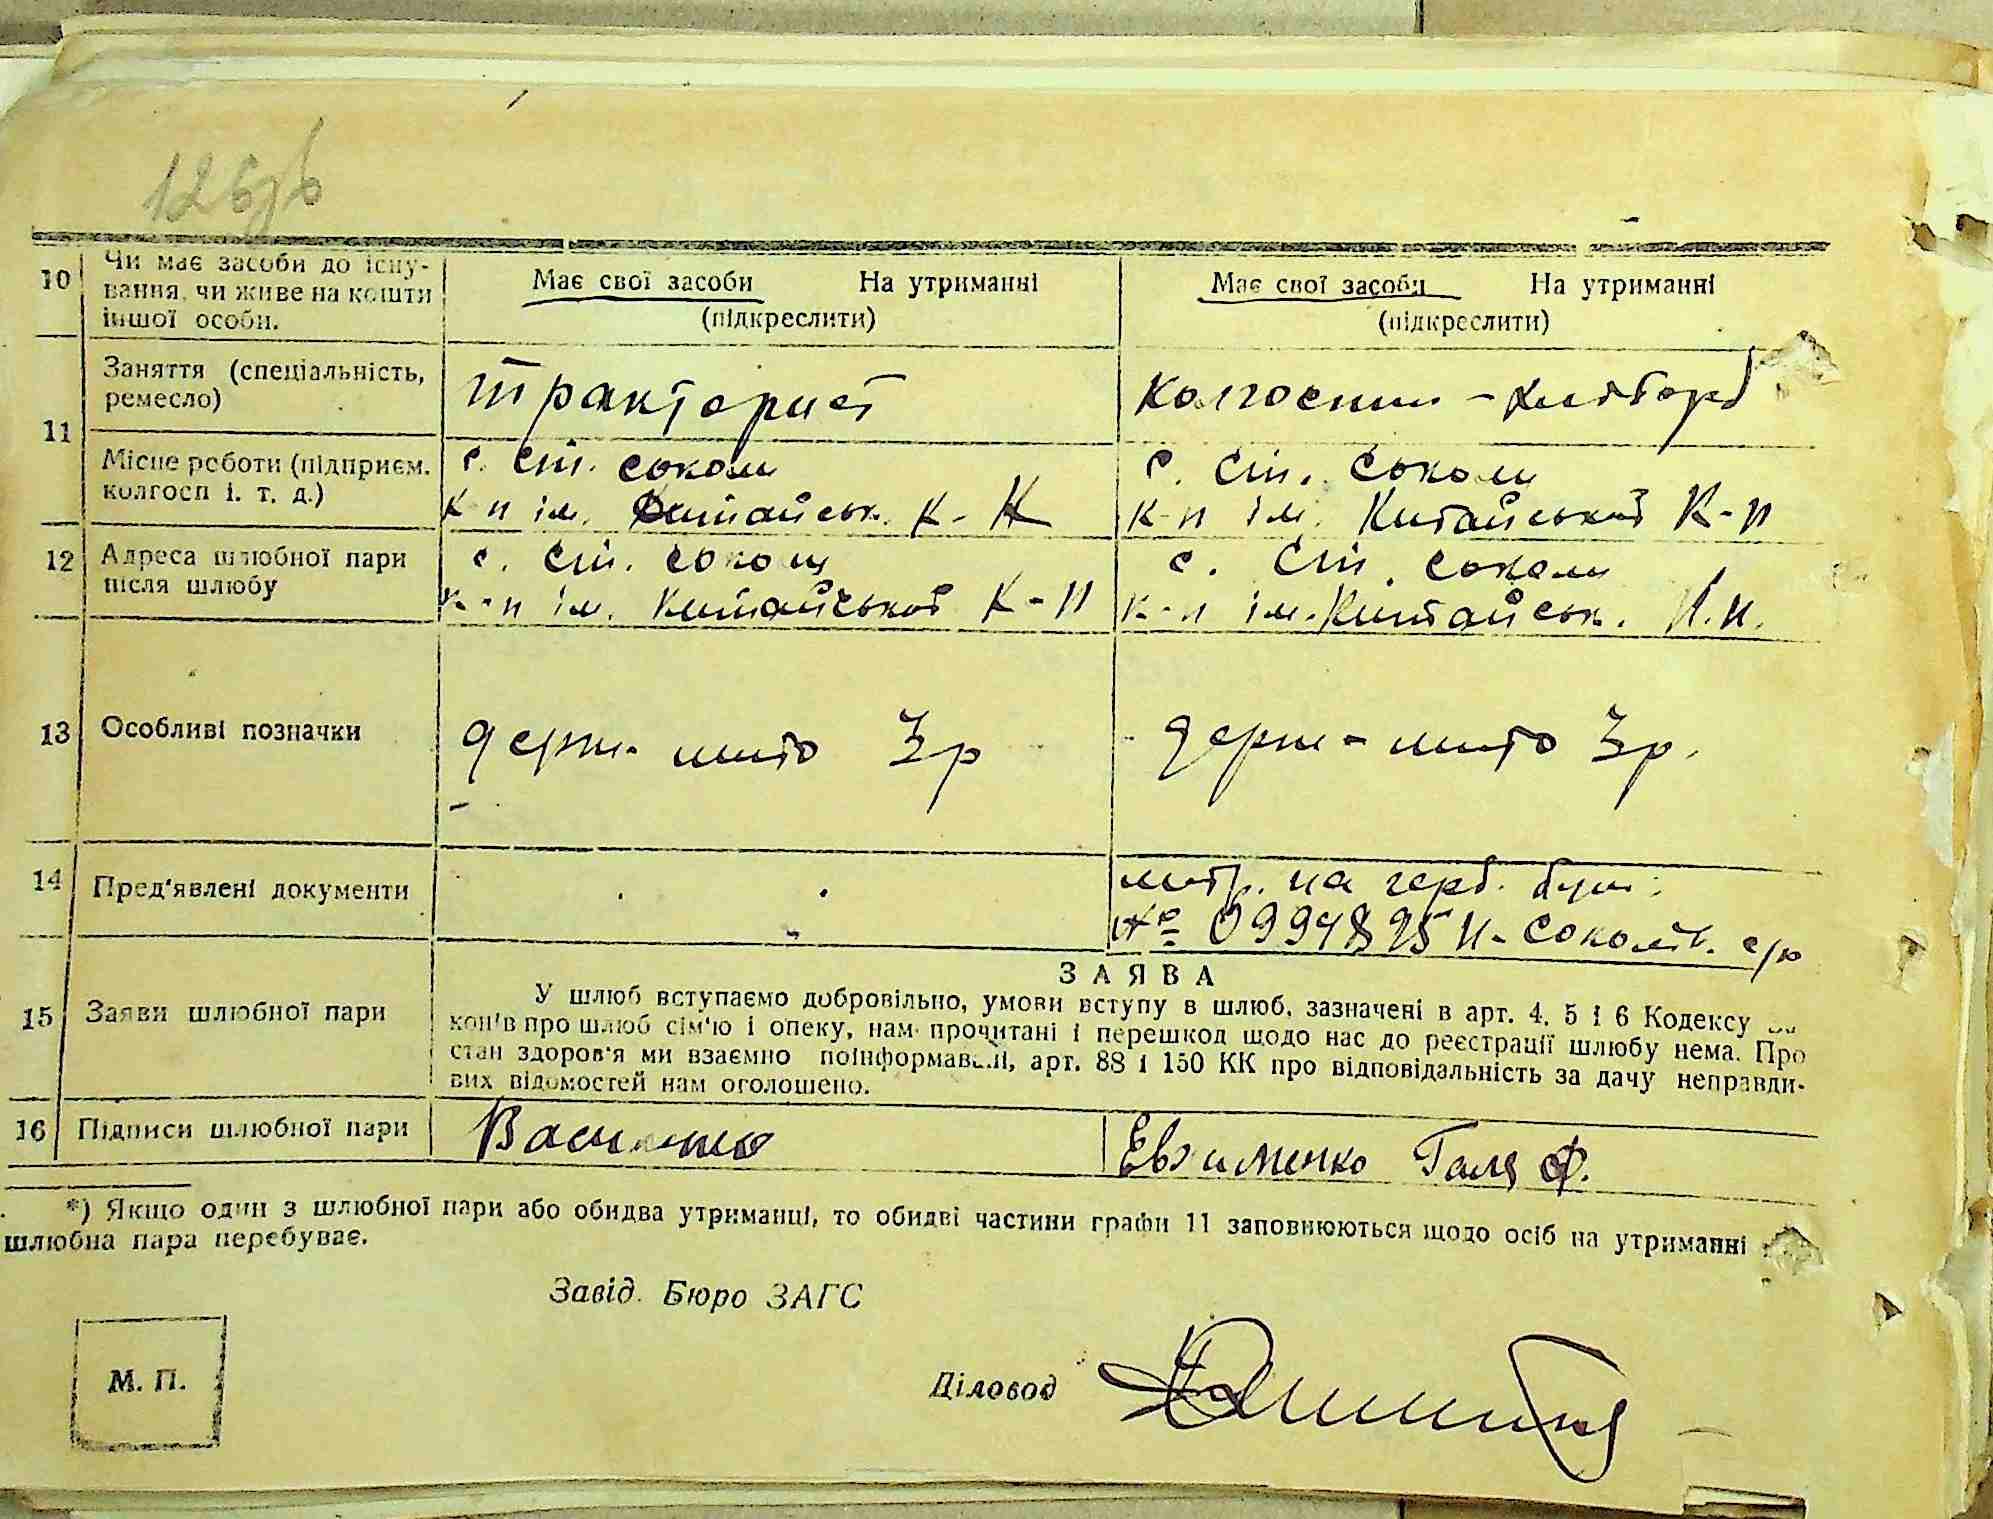 126зв
10 Чи має засоби до існу-
вання, чи живе на кошти
іншої особи.
Має свої засоби На утриманні
(підкреслити)
Має свої засоби На утриманні
(підкреслити)
11 Заняття (спеціальність,
ремесло)
тракторист
колгоспник -
Місце роботи (підприєм.
колгосп і. т. д.)
с. Ст. Соколи
к-п ім. Китайськ. К-
с. Ст. Соколи
к-п ім. Китайської К-п
12 Адреса шлюбної пари
після шлюбу
с. Ст. Соколи
к-п ім. Китайської К-п
с. Ст. Соколи
к-п ім. Китайськ. К.п.
13 Особливі позначки
держ-мито 3р
держ-мито 3р.
14 Пред'явлені документи
метр. на герб. бум.
№ 099 Н-Соколів. с/р
15 Заяви шлюбної пари
ЗАЯВА
У шлюб вступаємо добровільно, умови вступу в шлюб, зазначені в арт. 4, 5 і 6 Кодексу за
конів про шлюб сім'ю і опеку, нам прочитані і перешкод щодо нас до реєстрації шлюбу нема. Про
стан здоров'я ми взаємно поінформавалі, арт. 88 і 150 КК про відповідальність за дачу неправди-
вих відомостей нам оголошено.
16 Підписи шлюбної пари
Евхименко Галя Ф.
*) Якщо один з шлюбної пари або обидва утриманці, то обидві частини графи 11 заповнюються щодо осіб на утриманні
шлюбна пара перебуває.
Завід. Бюро ЗАГС
М. П.
Діловод